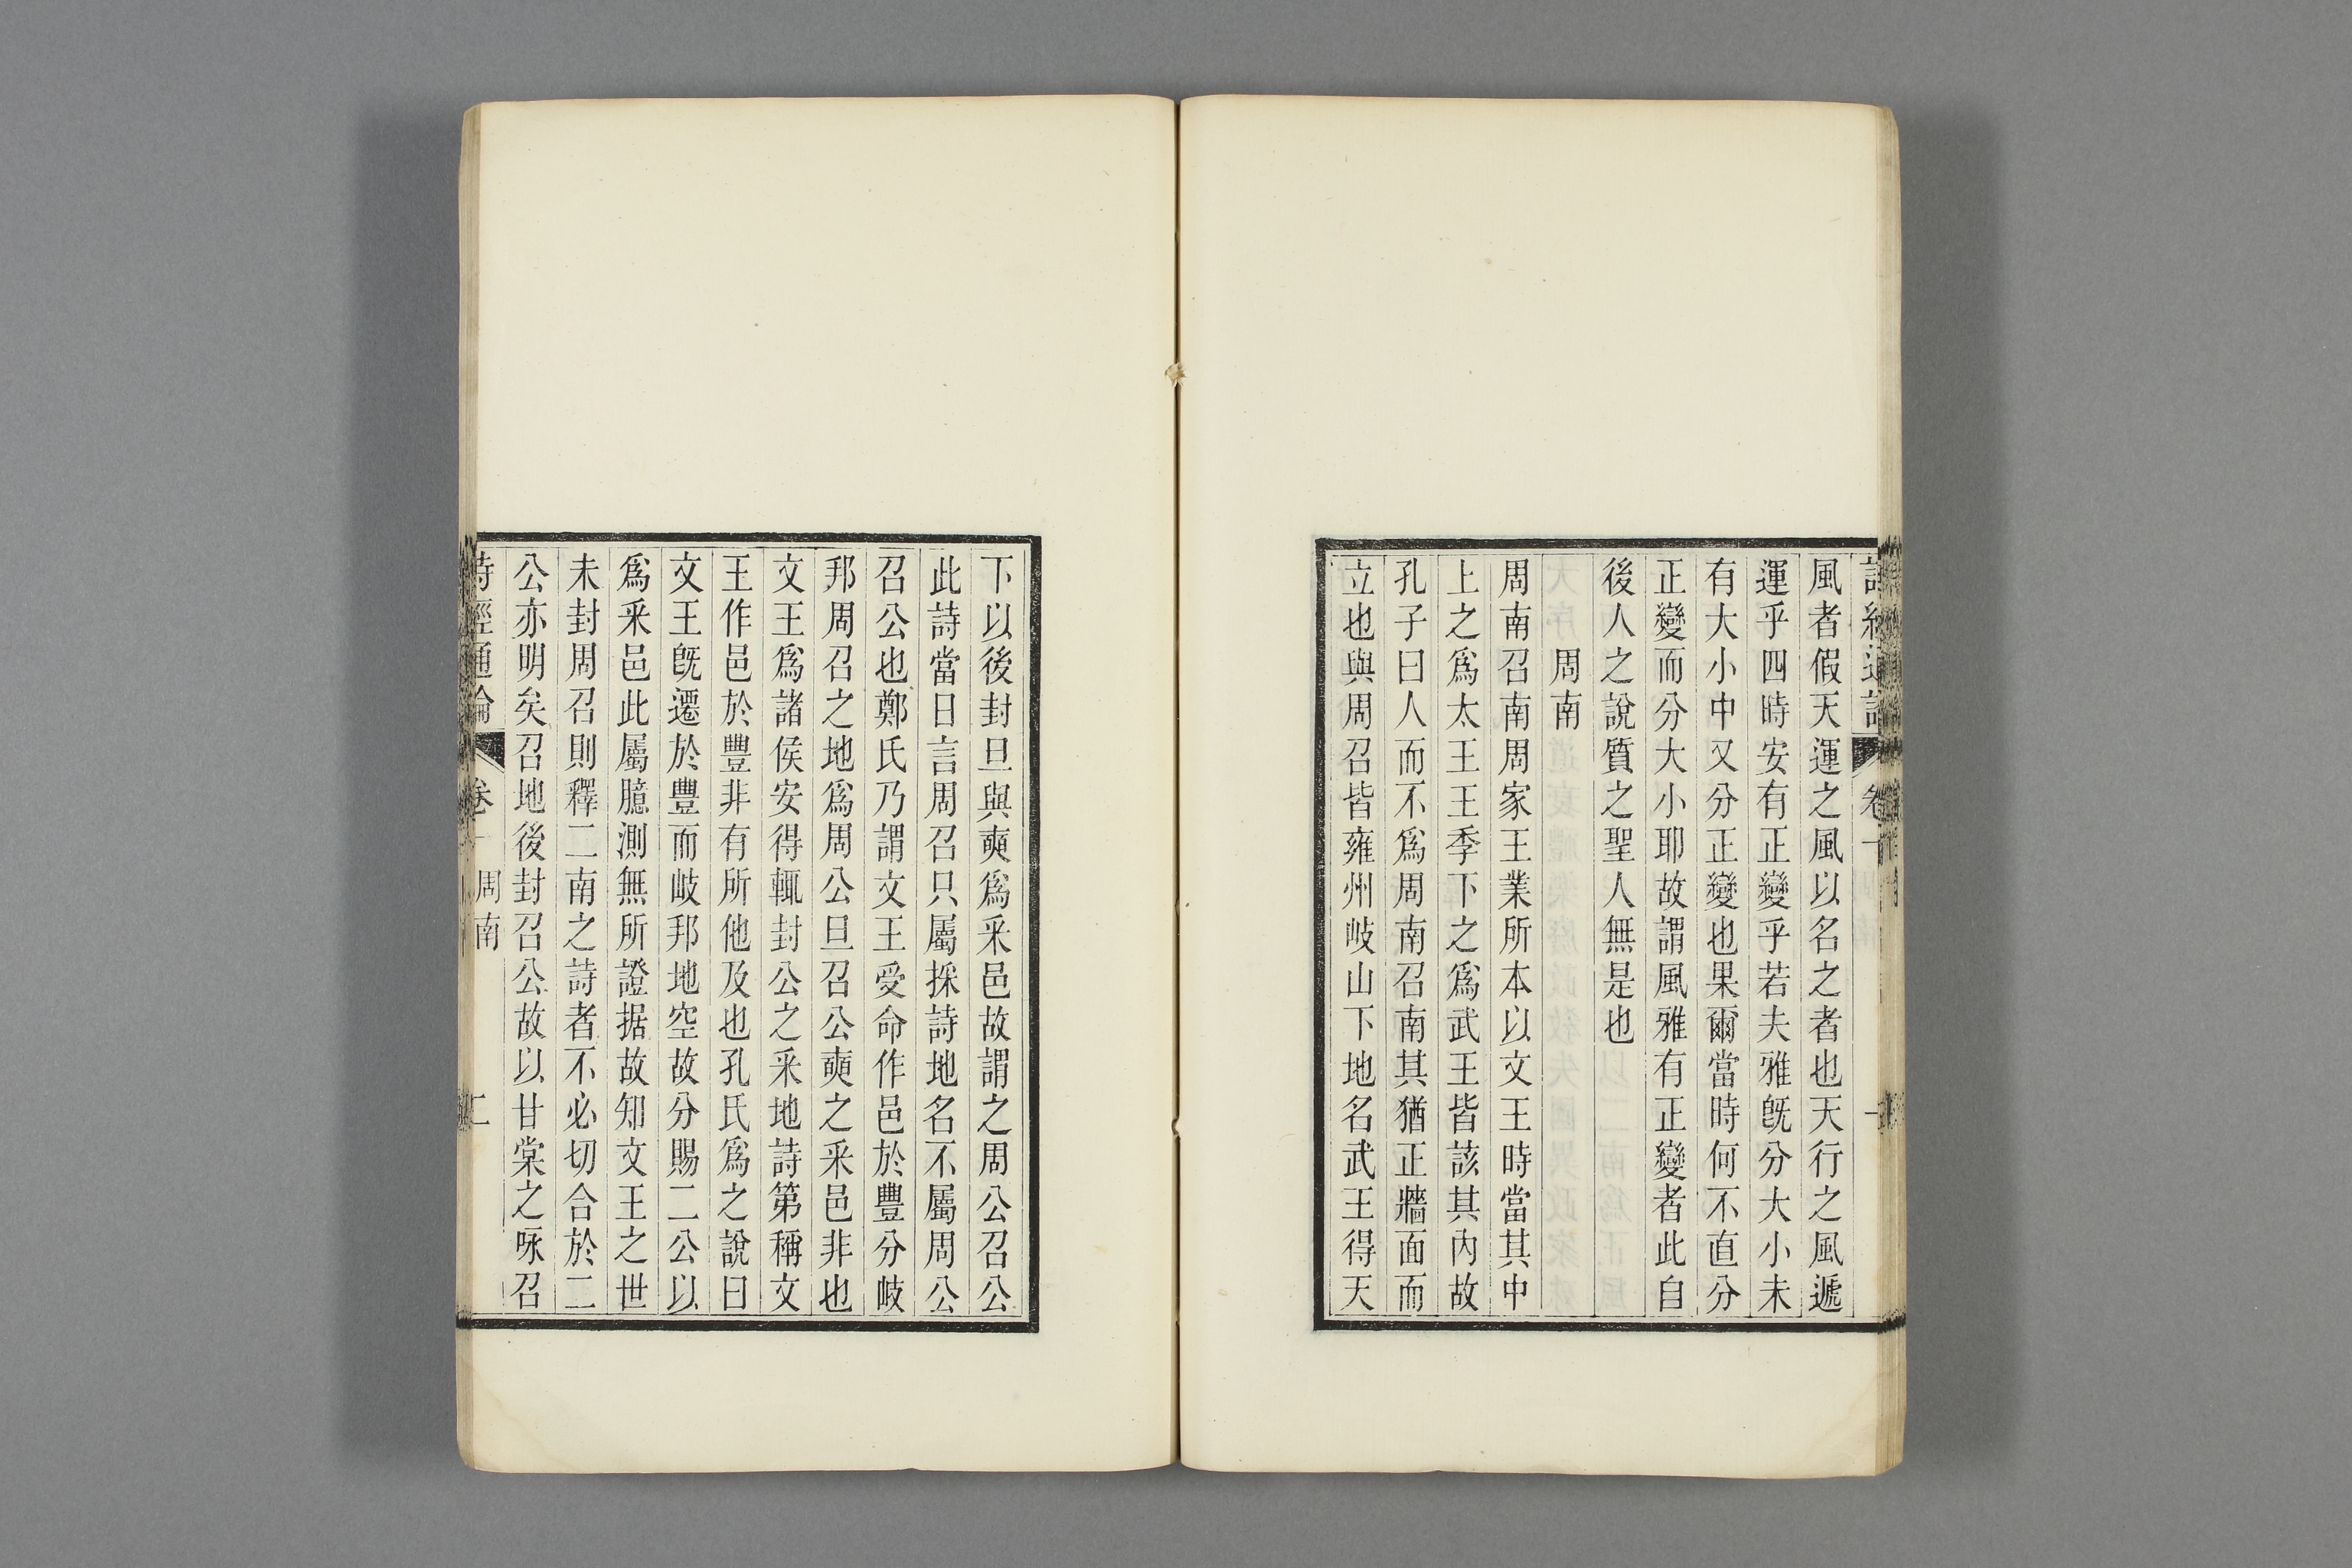 風者假天運之風以名之者也天行之風遞
運乎四時安有正變乎若夫雅旣分大小未
有大小中又分正變也果爾當時何不直分
正變而分大小耶故謂風雅有正變者此自
後人之說質之聖人無是也
周南
周南召南周家王業所本以文王時當其中
上之爲太王王季下之爲武王皆該其內故
孔子曰人而不爲周南召南其猶正牆面而
立也與周召皆雍州岐山下地名武王得天
下以後封旦與奭爲釆邑故謂之周公召公
此詩當日言周召只屬採詩地名不屬周公
召公也鄭氏乃謂文王受命作邑於豐分岐
邦周召之地爲周公旦召公奭之釆邑非也
文王爲諸侯安得輒封公之釆地詩第稱文
王作邑於豐非有所他及也孔氏爲之說曰
文王旣遷於豐而岐邦地空故分賜二公以
爲釆邑此屬臆測無所證据故知文王之世
未封周召則釋二南之詩者不必切合於二
公亦明矣召地後封召公故以甘棠之咏召
詩經通論 卷一 周南 二